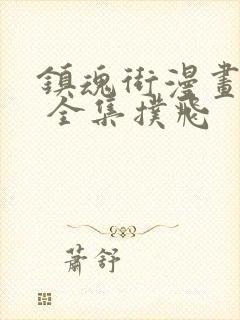 鎮魂街漫畫
全集撲飛
蕭舒